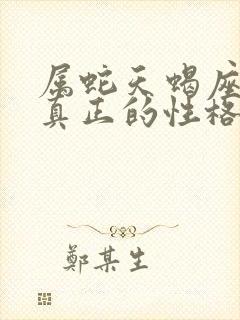 属蛇天蝎座
真正的性格
鄭某生